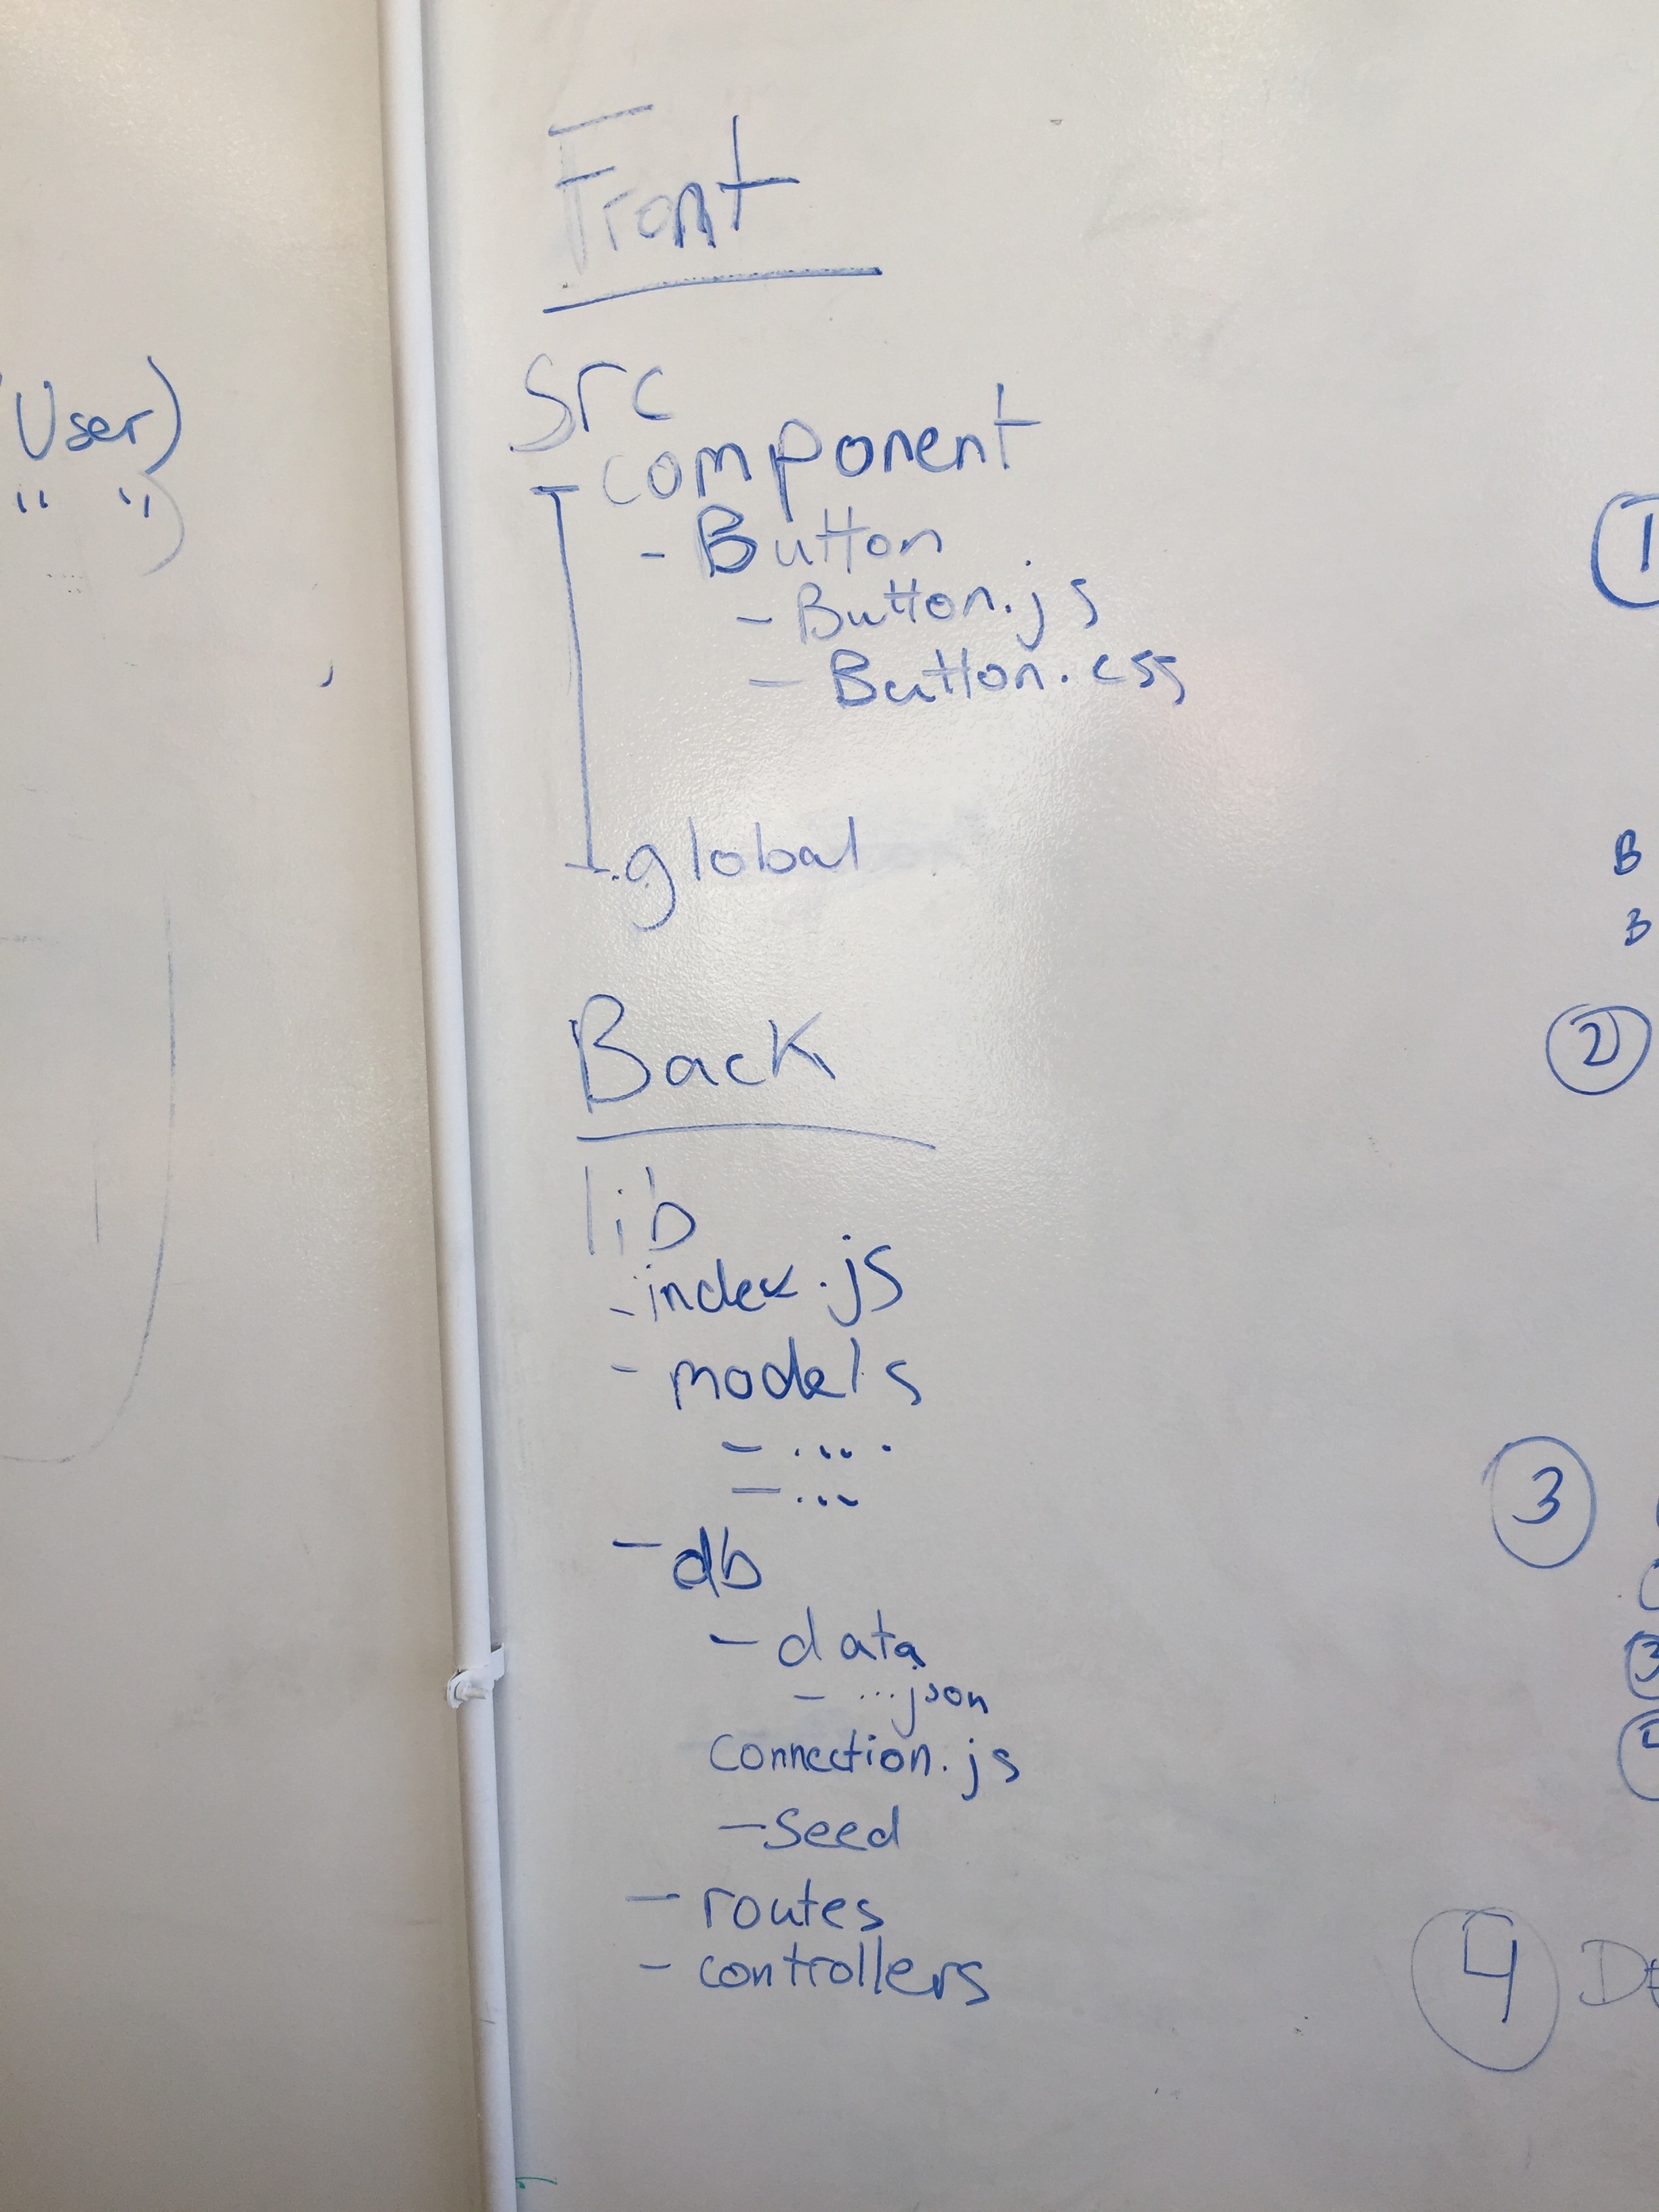 User)
" ")
Front
src
component
- Button
- Button.js
- Button.css
- global
Back
lib
- index.js
- models
- ....
- ...
- db
- data
- ...json
connection.js
- seed
- routes
- controllers
1
B
B
2
3
3
4